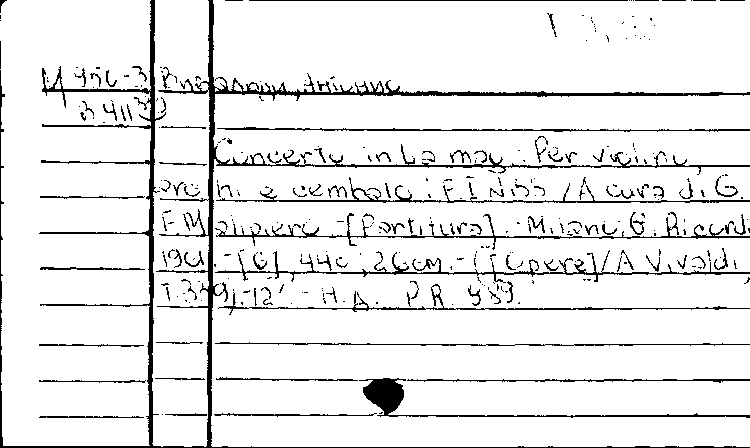 М 456-3 Вивальди, Антонио
3411
Concerto in La mag.: Per violino,
archi e cembalo: F I N / A cura di G.
F. Malipiero. -[Partitura]. - Milano: G. Ricordi
196 .-[6], 44c; 26cm.-([Opere]/A Vivaldi,
T. ).-12'.- H.Д. P.R.